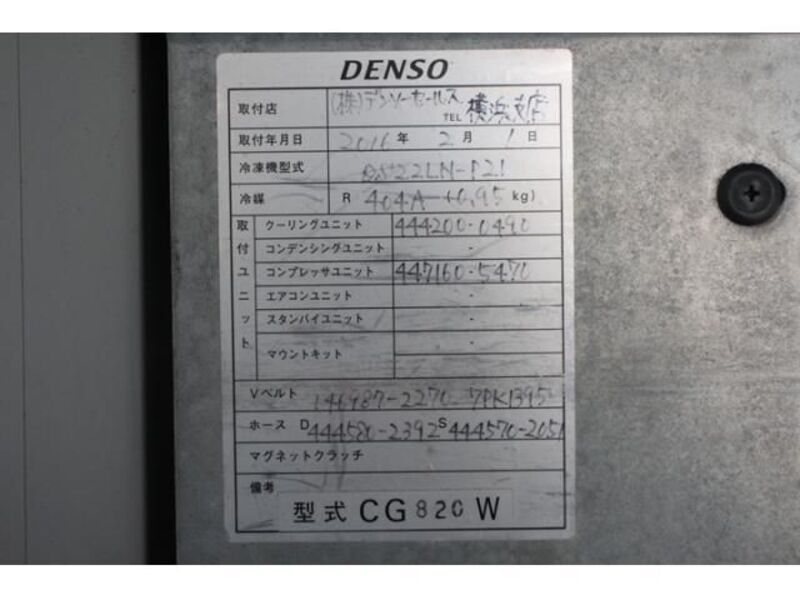 DENSO
取付店 (株)デンソーセールス TEL 横浜支店
取付年月日 2016 年 2 月 1 日
冷凍機型式
冷媒 R 404A (0.95 kg)
取付ユニット
クーリングユニット 444200-0490
コンデンシングユニット -
コンプレッサユニット 447160-5470
エアコンユニット -
スタンバイユニット -
マウントキット -
Vベルト 146987-2270 7PK1395
ホース D 444580-2392 S 444570-2051
マグネットクラッチ
備考
型式 CG820W